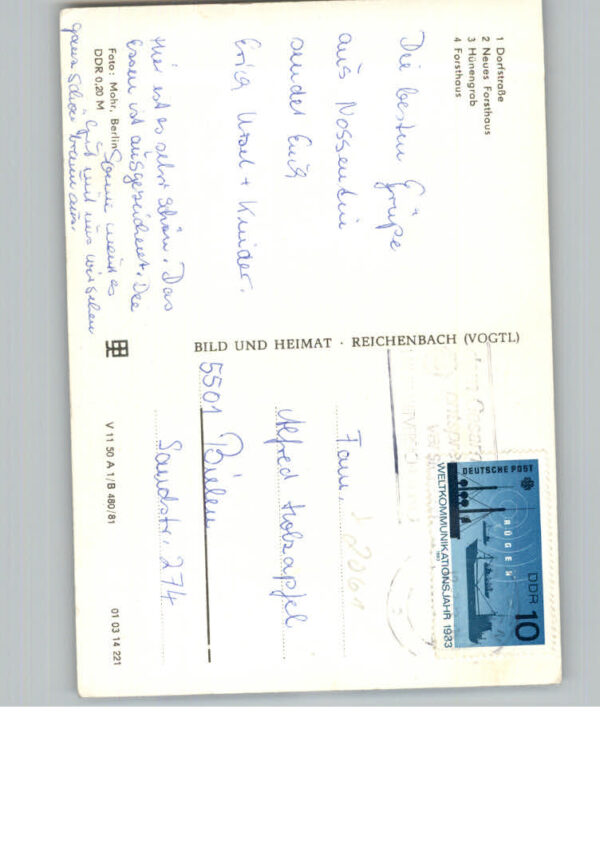 1 Dorfstraße
2 Neues Forsthaus
3 Hünengrab
4 Forsthaus
Die besten Grüße
aus Nossentin
sendet Euch
Erich Ursel + Kinder.
Hier ist es sehr schön. Das
Essen ist ausgezeichnet. Die
Sonne meint es
gut mit uns wir sehen
ganz schön braun aus.
Foto: Mohr, Berlin
DDR 0,20 M
BILD UND HEIMAT · REICHENBACH (VOGTL)
V 11 50 A 1/B 480/81
01 03 14 221
Fam.
Alfred Holzapfel
5501 Bielen
Sandstr. 274
DEUTSCHE POST
RÜGEN
DDR 10
WELTKOMMUNIKATIONSJAHR 1983